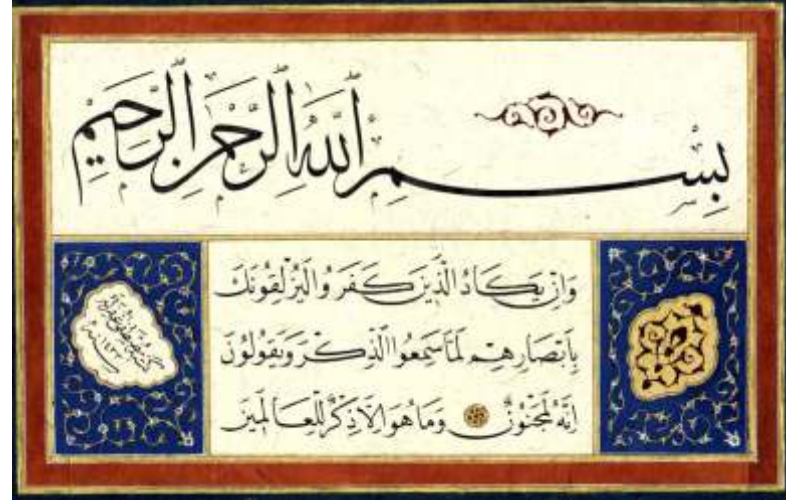 بِسْمِ اللهِ الرَّحْمٰنِ الرَّحِيْمِ
وَاِنْ يَكَادُ الَّذِيْنَ كَفَرُوا لَيُزْلِقُونَكَ
بِاَبْصَارِهِمْ لَمَّا سَمِعُوا الذِّكْرَ وَيَقُولُونَ
اِنَّهُ لَمَجْنُونٌ وَمَا هُوَ اِلَّا ذِكْرٌ لِلْعَالَمِينَ